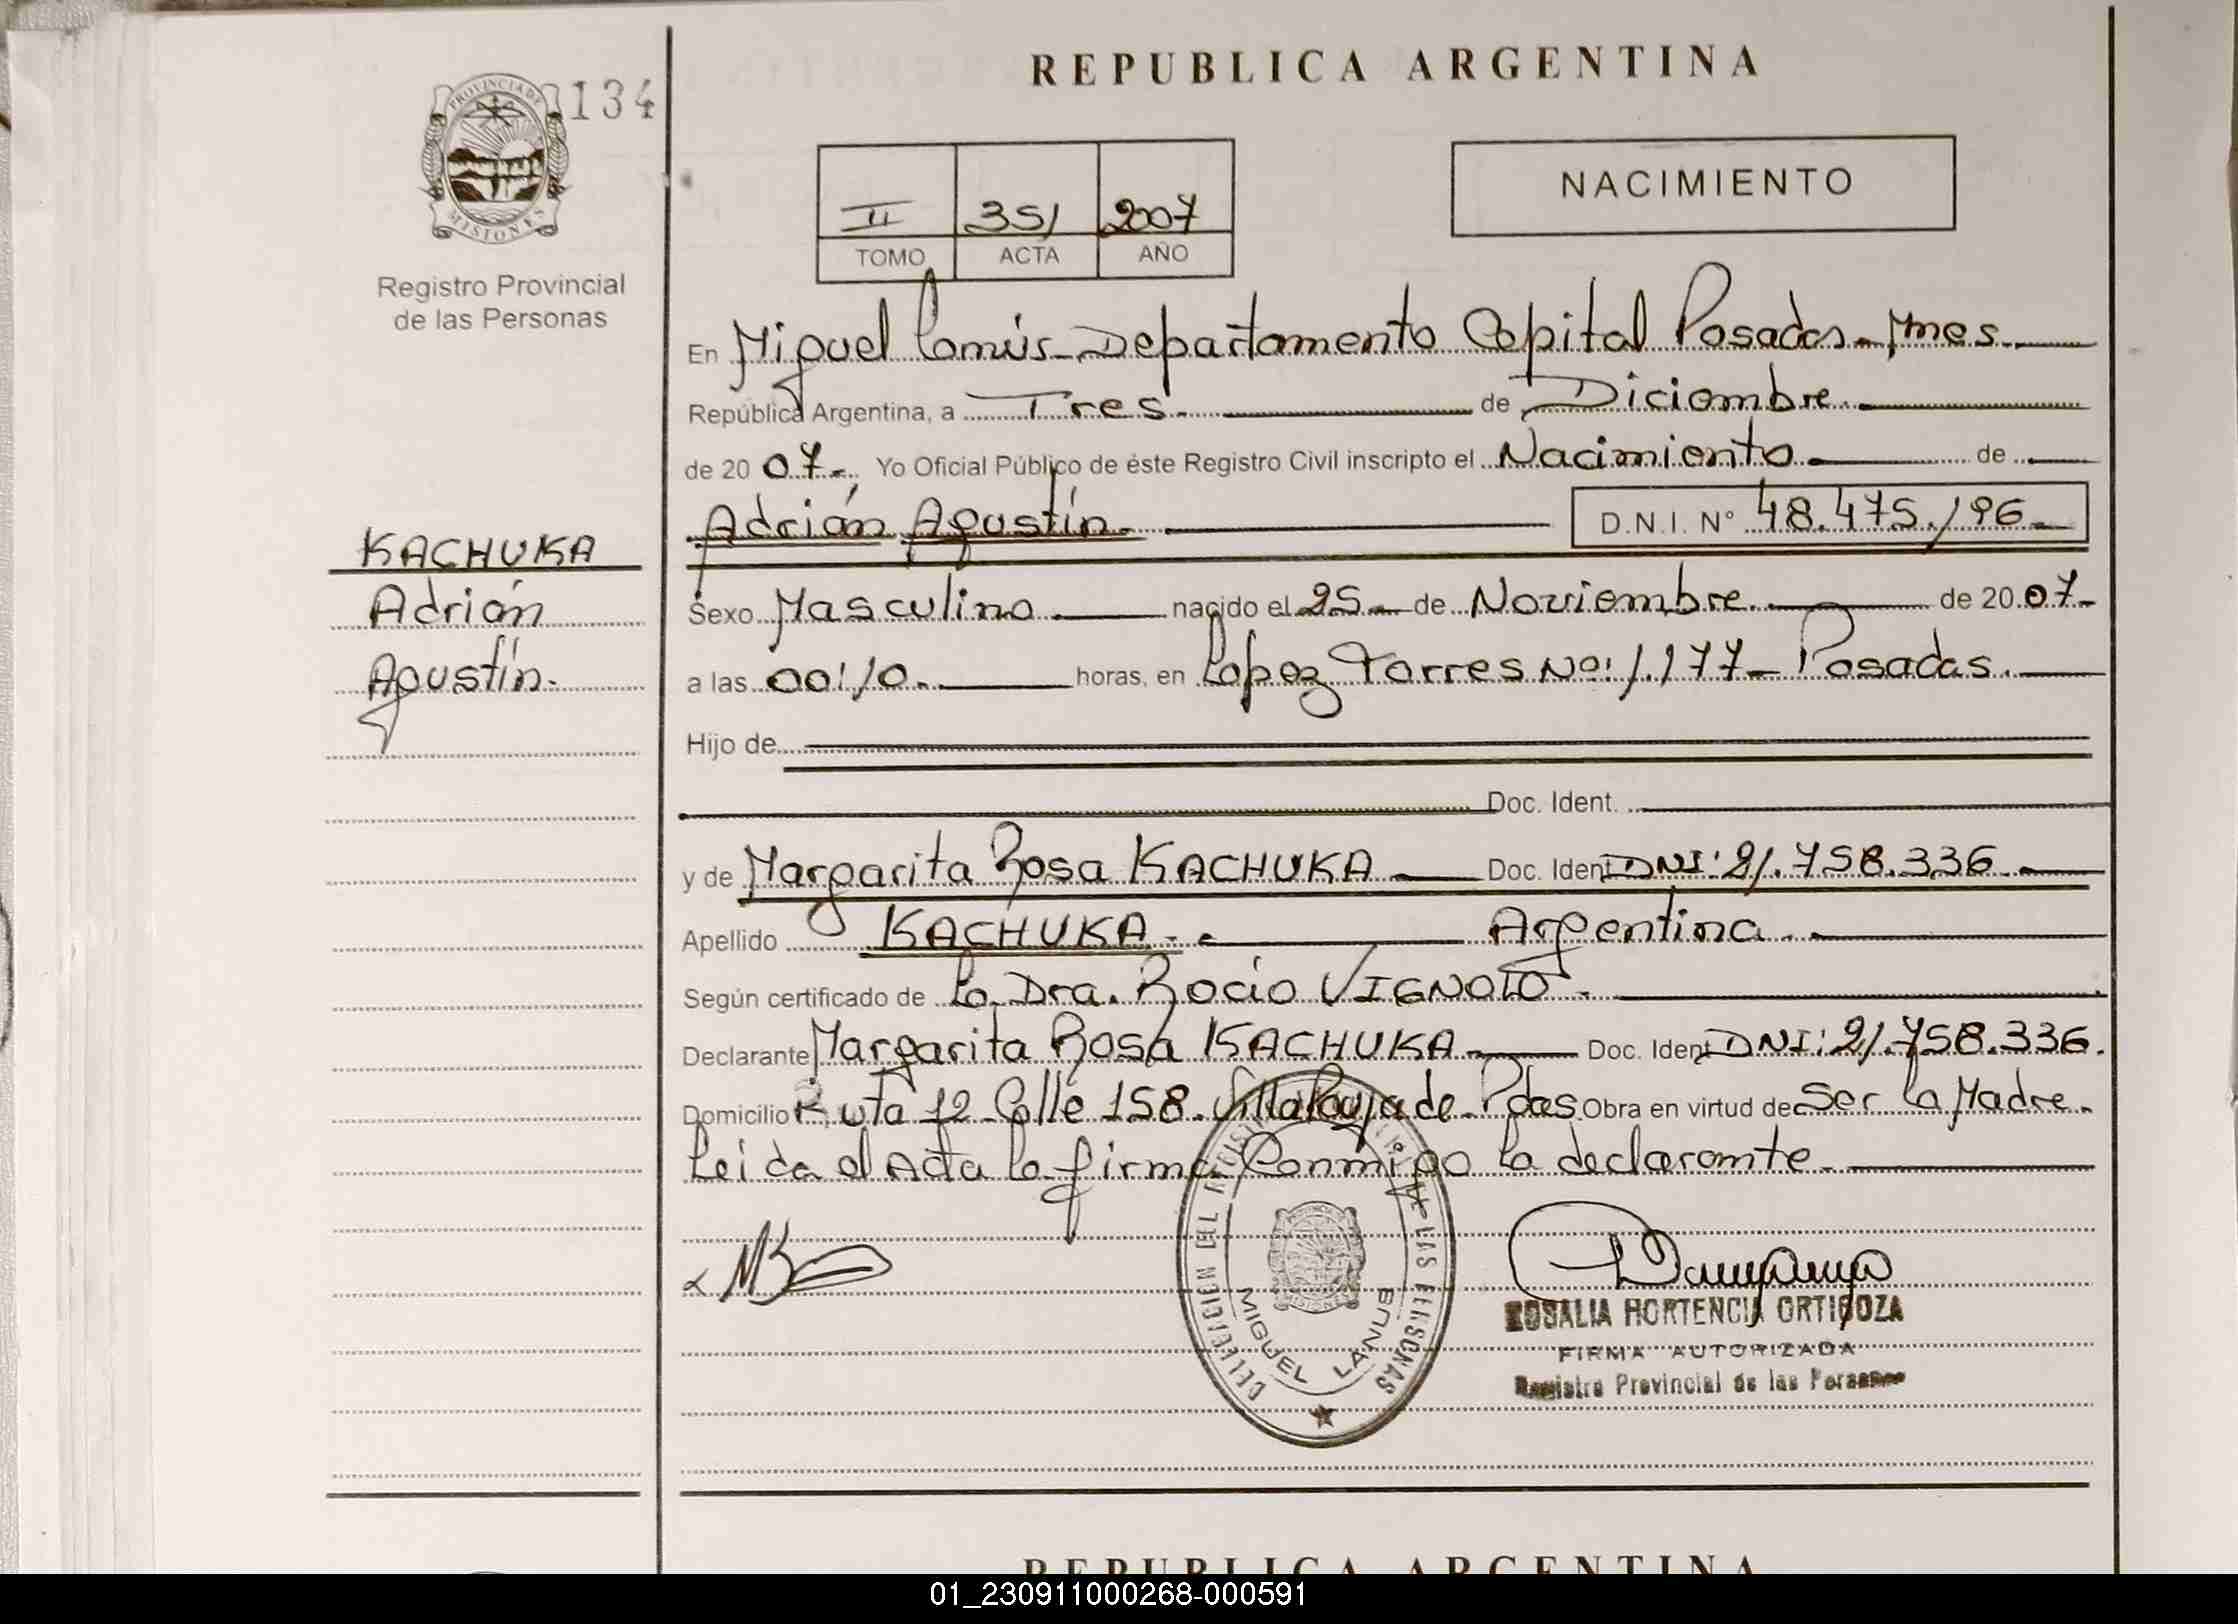 REPUBLICA ARGENTINA
PROVINCIA DE
MISIONES
134
Registro Provincial
de las Personas
II 351 2007
TOMO ACTA AÑO
NACIMIENTO
En Miguel Lanús - Departamento Capital Posadas - Mnes.
República Argentina, a Tres. de Diciembre.
de 20 07. Yo Oficial Público de éste Registro Civil inscripto el Nacimiento de
Adrián Agustín. D.N.I. Nº 48.475.196
KACHUKA
Adrián
Agustín.
Sexo Masculino nacido el 25 de Noviembre de 20 07
a las 00:10. horas, en López Torres Nº: 1.177 - Posadas.
Hijo de
Doc. Ident.
y de Margarita Rosa KACHUKA Doc. Ident DNI: 21.758.336
Apellido KACHUKA. Argentina.
Según certificado de la Dra. Rocío VIGNOLO.
Declarante Margarita Rosa KACHUKA Doc. Ident DNI: 21.758.336.
Domicilio Ruta 12 Calle 158. Villalonja de Pdas Obra en virtud de Ser la Madre.
Leida el Acta la firma Conmigo la declarante.
DELEGACION DEL REGISTRO DE LAS PERSONAS
MIGUEL LANUS
ROSALIA HORTENCIA ORTIGOZA
FIRMA AUTORIZADA
Registro Provincial de las Personas
REPUBLICA ARGENTINA
01_230911000268-000591